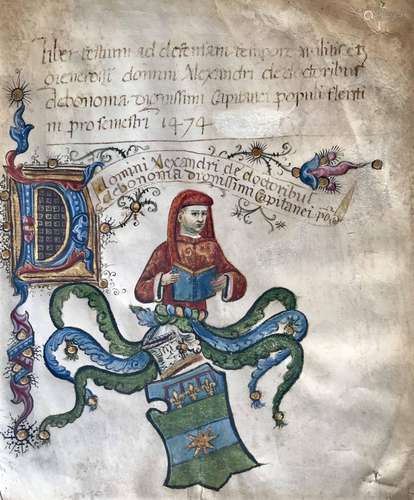 liber testium ad defensam tempore militis et
generosi domini Alexandri de doctoribus
debononia dignissimi Capitanei populi florenti
ni pro semestri 1474
D
domini Alexandri de doctoribus
debononia dignissimi Capitanei po